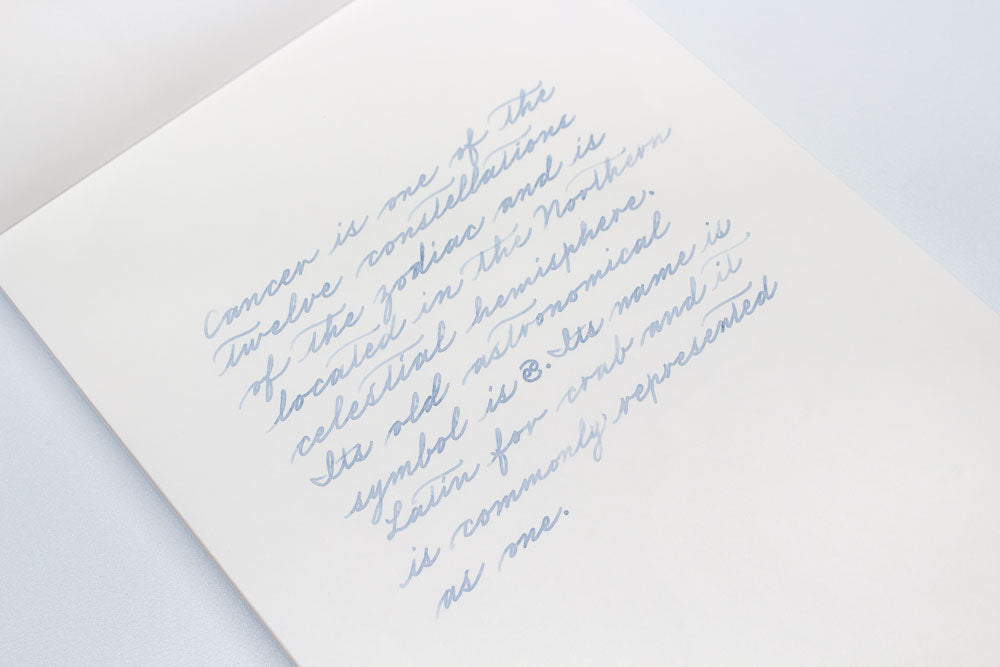 Cancer is one of the
twelve constellations
of the zodiac and is
located in the Northern
celestial hemisphere.
Its old astronomical
symbol is ♋. Its name is
Latin for crab and it
is commonly represented
as one.